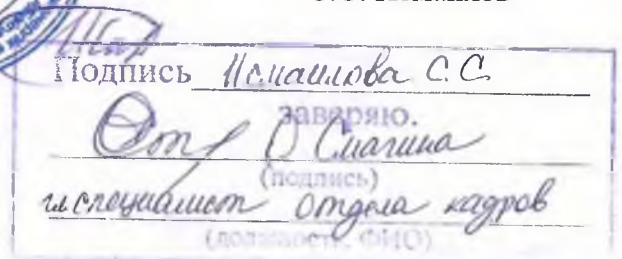 Подпись Исмаилова С.С.
заверяю.
О Смагина
(подпись)
гл.специалист отдела кадров
(должность, ФИО)